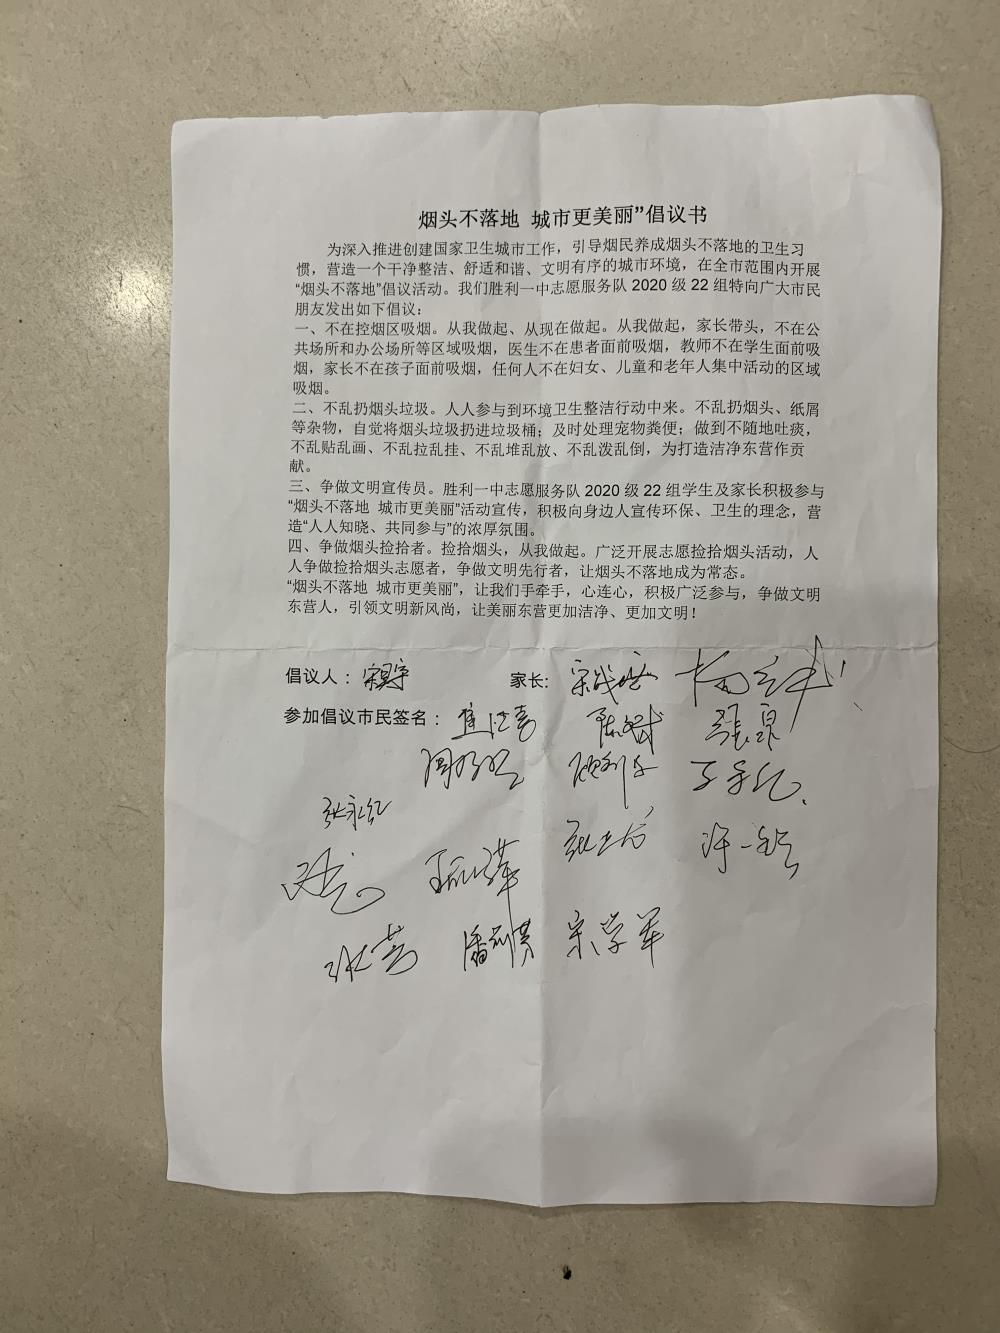 烟头不落地 城市更美丽”倡议书
为深入推进创建国家卫生城市工作，引导烟民养成烟头不落地的卫生习
惯，营造一个干净整洁、舒适和谐、文明有序的城市环境，在全市范围内开展
“烟头不落地”倡议活动。我们胜利一中志愿服务队 2020 级 22 组特向广大市民
朋友发出如下倡议：
一、不在控烟区吸烟。从我做起、从现在做起。从我做起，家长带头，不在公
共场所和办公场所等区域吸烟，医生不在患者面前吸烟，教师不在学生面前吸
烟，家长不在孩子面前吸烟，任何人不在妇女、儿童和老年人集中活动的区域
吸烟。
二、不乱扔烟头垃圾。人人参与到环境卫生整洁行动中来。不乱扔烟头、纸屑
等杂物，自觉将烟头垃圾扔进垃圾桶；及时处理宠物粪便；做到不随地吐痰，
不乱贴乱画、不乱拉乱挂、不乱堆乱放、不乱泼乱倒，为打造洁净东营作贡
献。
三、争做文明宣传员。胜利一中志愿服务队 2020 级 22 组学生及家长积极参与
“烟头不落地 城市更美丽”活动宣传，积极向身边人宣传环保、卫生的理念，营
造“人人知晓、共同参与”的浓厚氛围。
四、争做烟头捡拾者。捡拾烟头，从我做起。广泛开展志愿捡拾烟头活动，人
人争做捡拾烟头志愿者，争做文明先行者，让烟头不落地成为常态。
“烟头不落地 城市更美丽”，让我们手牵手，心连心，积极广泛参与，争做文明
东营人，引领文明新风尚，让美丽东营更加洁净、更加文明！
倡议人： 家长:
参加倡议市民签名： 张泉
张永红
张芳 宋学军